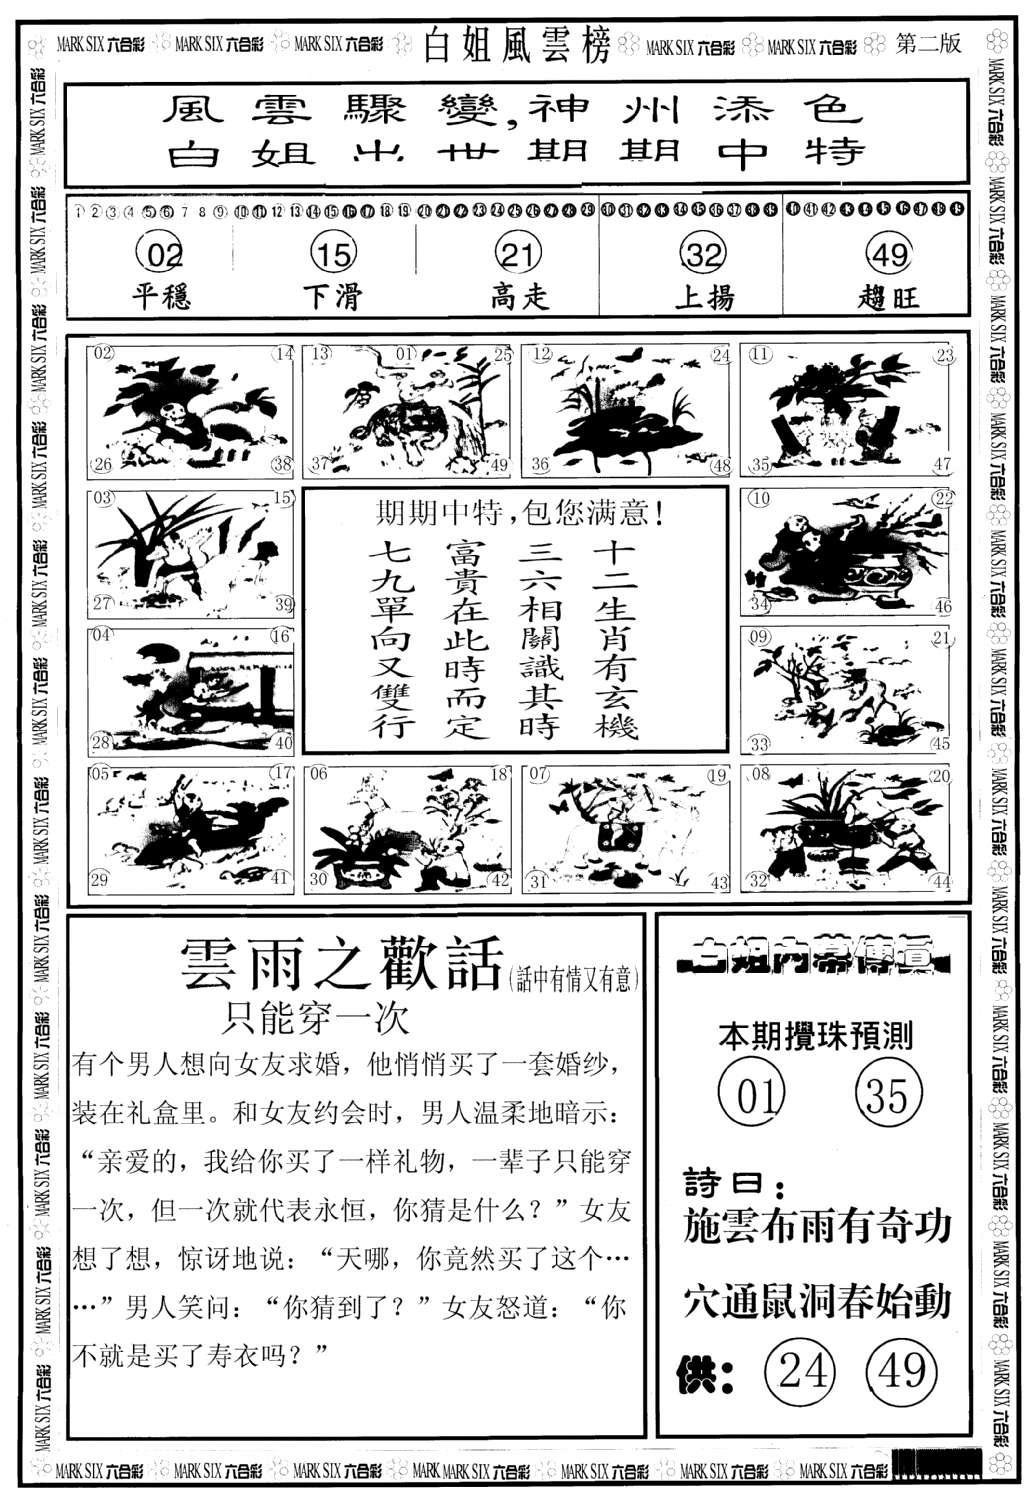 MARK SIX 六合彩 MARK SIX 六合彩 MARK SIX 六合彩 白姐風雲榜 MARK SIX 六合彩 MARK SIX 六合彩 第二版
風雲驟變,神州添色
白姐出世期期中特
1 2 3 4 5 6 7 8 9 10 11 12 13 14 15 16 17 18 19 20 21 22 23 24 25 26 27 28 29 30 31 32 33 34 35 36 37 38 39 40 41 42 43 44 45 46 47 48 49
02 15 21 32 49
平穩 下滑 高走 上揚 趨旺
02 14 13 01 25 12 24 11 23
26 38 37 49 36 48 35 47
03 15 10 22
27 39 34 46
04 16 09 21
28 40 33 45
05 17 06 18 07 19 08 20
29 41 30 42 31 43 32 44
期期中特,包您满意!
十二生肖有玄機
三六相關識其時
富貴在此時而定
七九單向又雙行
雲雨之歡話(話中有情又有意)
只能穿一次
有个男人想向女友求婚，他悄悄买了一套婚纱，
装在礼盒里。和女友约会时，男人温柔地暗示：
“亲爱的，我给你买了一样礼物，一辈子只能穿
一次，但一次就代表永恒，你猜是什么？”女友
想了想，惊讶地说：“天哪，你竟然买了这个…
…”男人笑问：“你猜到了？”女友怒道：“你
不就是买了寿衣吗？”
白姐内幕傳真
本期攪珠預測
01 35
詩曰：
施雲布雨有奇功
穴通鼠洞春始動
供： 24 49
MARK SIX 六合彩 MARK SIX 六合彩 MARK SIX 六合彩 MARK MARK SIX 六合彩 MARK SIX 六合彩 MARK SIX 六合彩 MARK SIX 六合彩